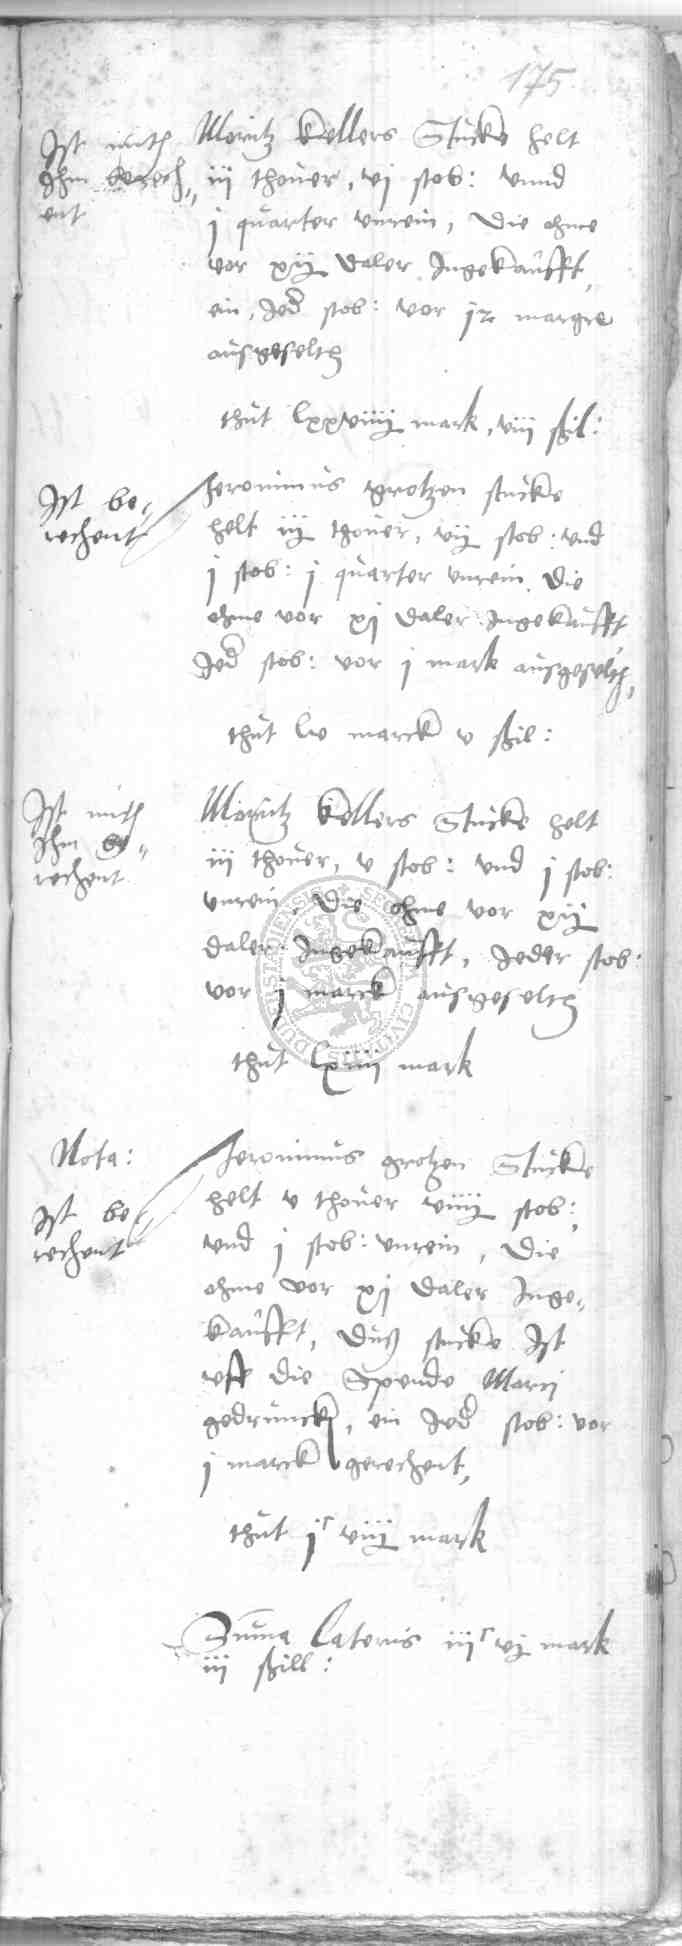 175
Ist mith
Ihm berech„
ent
Moritz Kellers Stucke helt
iij thover, vj stob: unnd
j quarter unrein, die ohme
vor xij daler Ingekaufft,
ein, Jed stob: vor margre
ausgeselth
thut lxxviiij mark, viij ßil:
Ist be„
rechent
Jeronimus gretzen stucke
helt iij thover, vij stob: und
j stob: j quarter unrein, die
ohme vor xj daler Ingekaufft
Jed stob: vor j mark ausgeselth,
thut lv marck v ßil:
Ist mith
Ihm be„
rechent
Moritz Kellers Stucke helt
iij thover, v stob: und j stob:
unrein, die ohme vor xij
daler Ingekaufft, Jeder stob:
vor j marck ausgeselth
thut lxiiij mark
Nota:
Ist be„
rechent
Jeronimus gretzen Stucke
helt v thover viiij stob:,
und j stob: unrein, die
ohme vor xj daler Inge„
kaufft, duß stucke Ist
uff die Spende Marci
gedrunck, ein Jed stob: vor
j marck gerechent,
thut jc viij mark
Suma Lateris iijc vj mark
iij ßill: